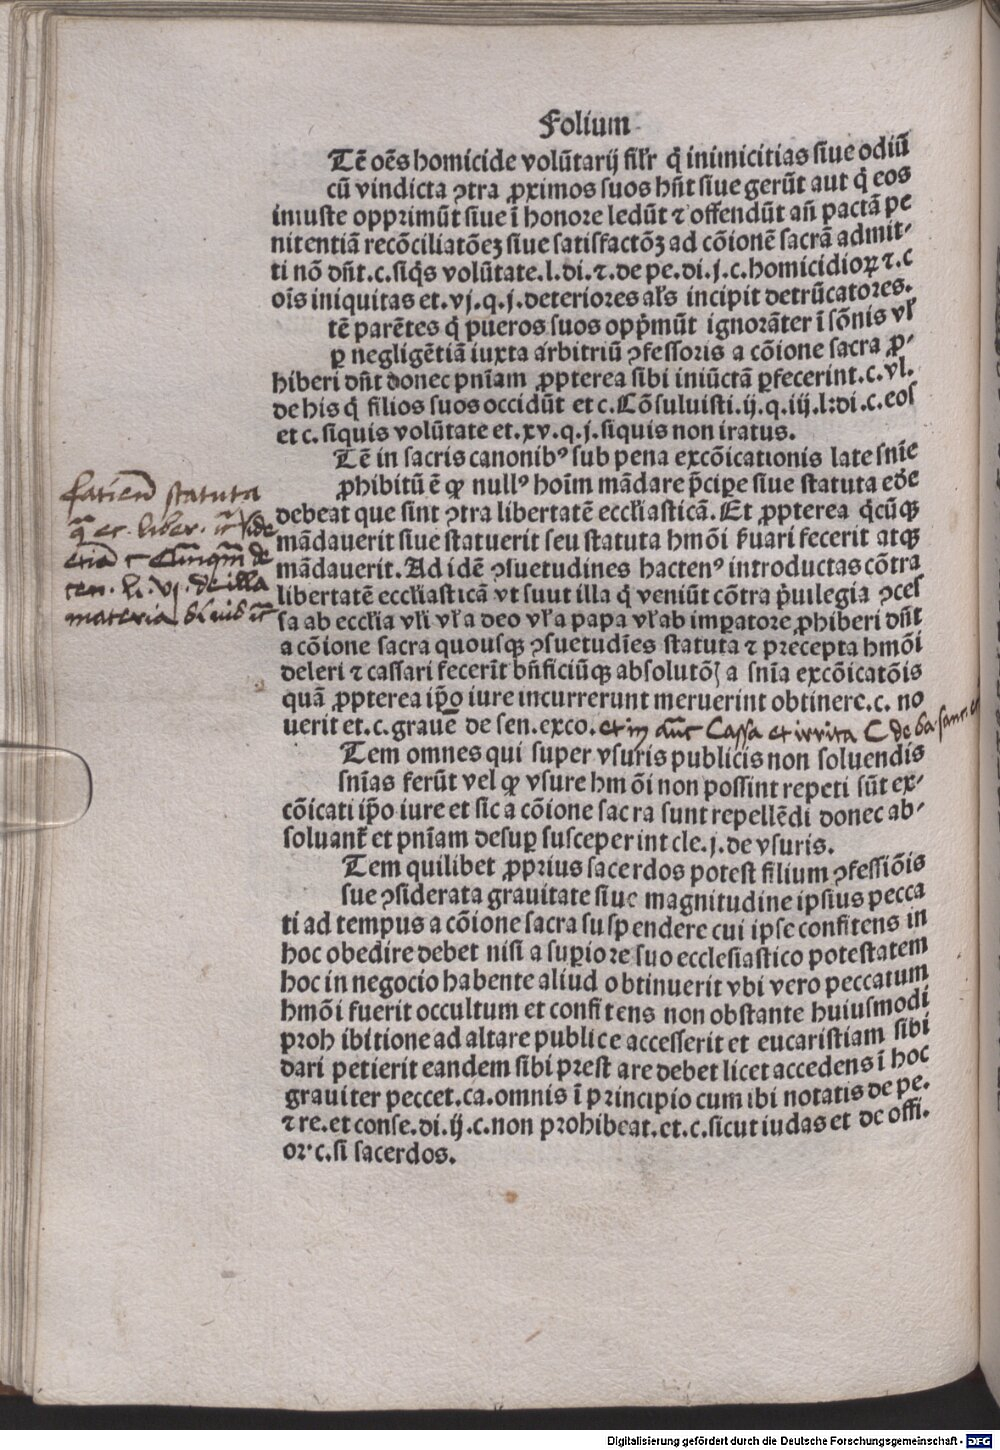 Folium
Tē oēs homicide volūtarij siłr q̄ inimicitias siue odiū
cū vindicta ↄtra ꝓximos suos hn̄t siue gerūt aut q̄ eos
iniuste opprimūt siue ī honore ledūt ⁊ offendūt an̄ pactā pe
nitentiā recōciliatōeꝫ siue satisfactōꝫ ad cōionē sacrā admit⸗
ti nō dn̄t.c.siq̄s volūtate.l.di.⁊.de pe.di.j.c.homicidioꝝ ⁊.c
oīs iniquitas et.vj.q.j.deteriores ałs incipit detrūcatores.
tē parētes q̄ pueros suos opp̄mūt ignorāter ī sōnis vł
ꝑ negligētiā iuxta arbitriū ↄfessoris a cōione sacra ꝓ⸗
hiberi dn̄t donec pnīam ꝓpterea sibi iniūctā ꝑfecerint.c.vl.
de his q̄ filios suos occidūt et c.Cōsuluisti.ij.q.iij.l:di.c.eos
et c.siquis volūtate et.xv.q.j.siquis non iratus.
Tē in sacris canonibꝰ sub pena excōicationis late snīe
ꝓhibitū ē ꝙ nullꝰ hoīm mādare p̄cipe siue statuta edē
debeat que sint ↄtra libertatē eccłiasticā. Et ꝓpterea q̄cūqꝫ
mādauerit siue statuerit seu statuta hmōi ẜuari fecerit atqꝫ
mādauerit. Ad idē ↄsuetudines hactenꝰ introductas cōtra
libertatē eccłiasticā vt suut illa q̄ veniūt cōtra p̄uilegia ↄces
sa ab eccłia vłi vł a deo vł a papa vł ab imꝑatore ꝓhiberi dn̄t
a cōione sacra quousqꝫ ↄsuetudīes statuta ⁊ precepta hmōi
deleri ⁊ cassari fecerīt bn̄ficiūqꝫ absolutōꝭ a snīa excōicatōis
quā ꝓpterea ip̄o iure incurrerunt meruerint obtinere.c. no
uerit et.c.grauē de sen.exco. et in auc̄t Cassa et irrita C de sa. sanc. ec
fatiend statuta
et. liber. vide
etiā c
cen. li. vj. de illa
materia
Tem omnes qui super vsuris publicis non soluendis
snīas ferūt vel ꝙ vsure hm ōi non possint repeti sūt ex⸗
cōicati ip̄o iure et sic a cōione sac ra sunt repellēdi donec ab⸗
soluant᷑ et pnīam desuꝑ susceper int cle.j.de vsuris.
Tem quilibet ꝓprius sacerdos potest filium ↄfessiōis
sue ↄsiderata grauitate siue magnitudine ipsius pecca
ti ad tempus a cōione sacra susp endere cui ipse confitens in
hoc obedire debet nisi a suꝑiore suo ecclesiastico potestatem
hoc in negocio habente aliud obtinuerit vbi vero peccatum
hmōi fuerit occultum et confi tens non obstante huiusmodi
proh ibitione ad altare public e accesserit et eucaristiam sibi
dari petierit eandem sibi prest are debet licet accedens ī hoc
grauiter peccet.ca.omnis ī principio cum ibi notatis de pe.
⁊ re.et conse.di.ij.c.non prohibeat.et.c.sicut iudas et de offi.
or·c.si sacerdos.
Digitalisierung gefördert durch die Deutsche Forschungsgemeinschaft - DFG